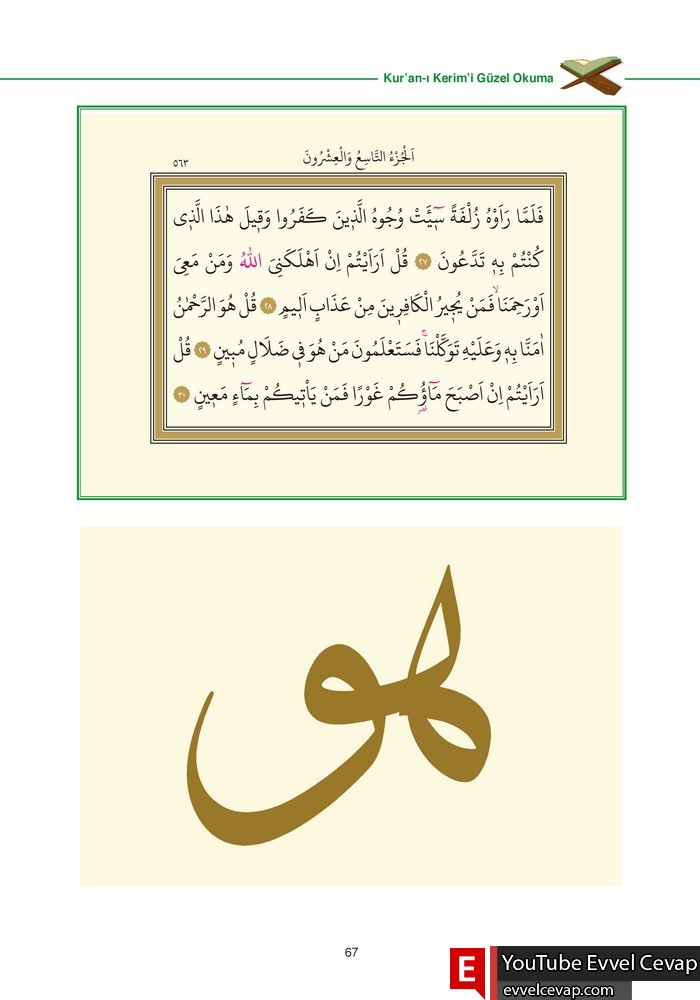 Kur'an-ı Kerim'i Güzel Okuma
اَلْجُزْءُ التَّاسِعُ وَالْعِشْرُونَ
٥٦٣
فَلَمَّا رَاَوْهُ زُلْفَةً سٓيـَٔتْ وُجُوهُ الَّذ۪ينَ كَفَرُوا وَق۪يلَ هٰذَا الَّذ۪ي
كُنْتُمْ بِه۪ تَدَّعُونَ ﴿٢٧﴾ قُلْ اَرَاَيْتُمْ اِنْ اَهْلَكَنِيَ اللّٰهُ وَمَنْ مَعِيَ
اَوْ رَحِمَنَاۙ فَمَنْ يُج۪يرُ الْكَافِر۪ينَ مِنْ عَذَابٍ اَل۪يمٍ ﴿٢٨﴾ قُلْ هُوَ الرَّحْمٰنُ
اٰمَنَّا بِه۪ وَعَلَيْهِ تَوَكَّلْنَاۚ فَسَتَعْلَمُونَ مَنْ هُوَ ف۪ي ضَلَالٍ مُب۪ينٍ ﴿٢٩﴾ قُلْ
اَرَاَيْتُمْ اِنْ اَصْبَحَ مَٓاؤُ۬كُمْ غَوْرًا فَمَنْ يَأْت۪يكُمْ بِمَٓاءٍ مَع۪ينٍ ﴿٣٠﴾
هو
67
E YouTube Evvel Cevap
evvelcevap.com